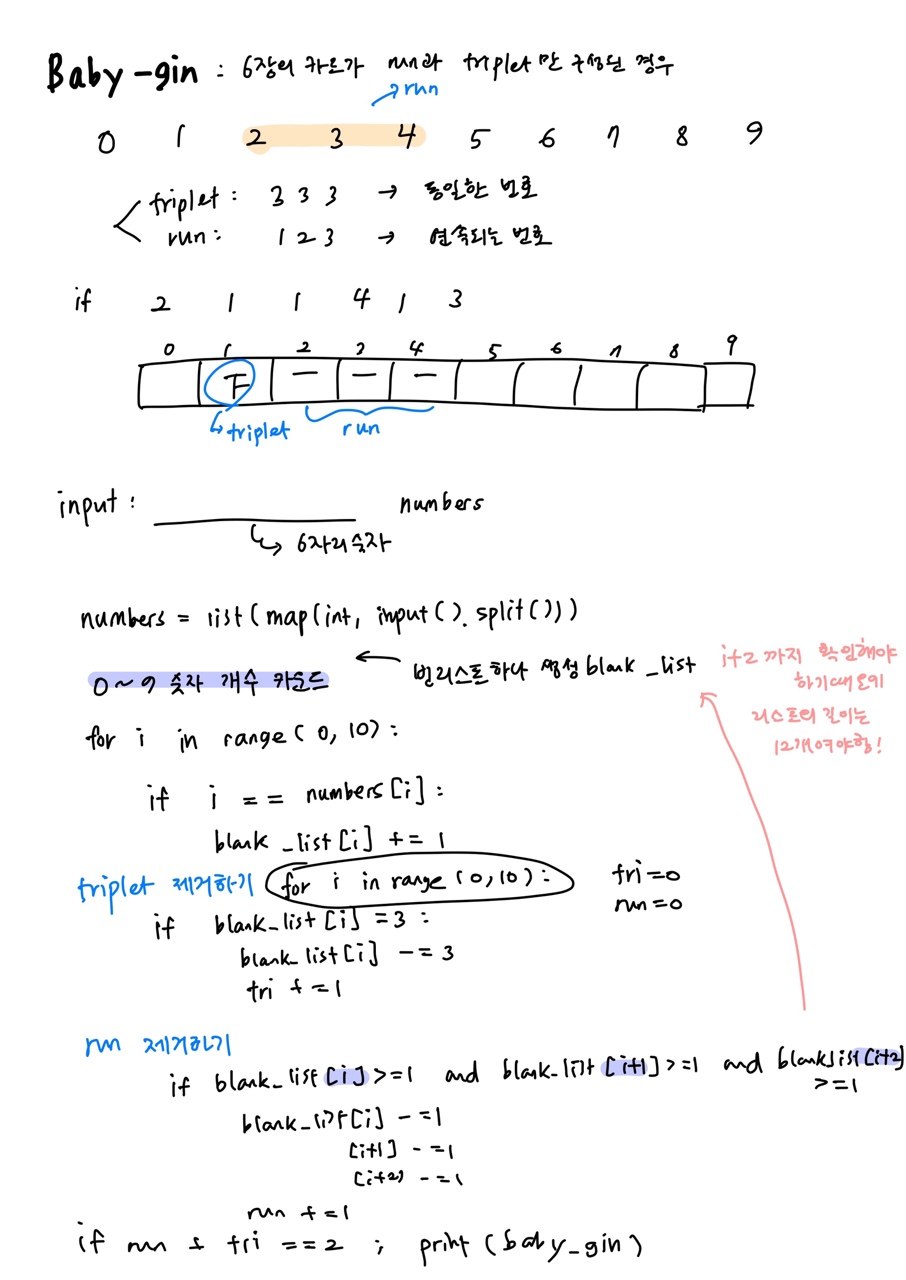 Baby-gin : 6장의 카드가 run과 triplet만 구성된 경우
→ run
0 1 2 3 4 5 6 7 8 9
triplet : 3 3 3 → 동일한 번호
run : 1 2 3 → 연속되는 번호
if 2 1 1 4 1 3
0 1 2 3 4 5 6 7 8 9
↳ triplet run
input : ____________ numbers
↳ 6자리숫자
numbers = list(map(int, input().split()))
0~9 숫자 개수 카운드 ← 빈리스트하나 생성 blank_list
i+2 까지 확인해야
하기때문에
리스트의 길이는
12개여야함!
for i in range(0,10):
if i == numbers[i]:
blank_list[i] += 1
triplet 제거하기 for i in range(0,10):
tri=0
run=0
if blank_list[i] =3 :
blank_list[i] -= 3
tri +=1
run 제거하기
if blank_list[i] >=1 and blank_list[i+1] >=1 and blanklist[i+2]
>=1
blank_list[i] -=1
[i+1] -=1
[i+2] -=1
run +=1
if run + tri ==2 ; print(baby_gin)